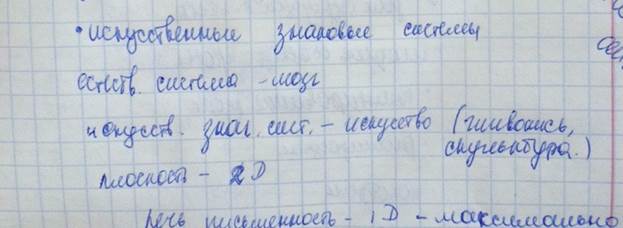 • искусственные знаковые системы
естеств. система - мозг
искусств. знак. сист. - искусство (живопись,
скульптура.)
плоскость - 2D
речь письменность - 1D - максимально